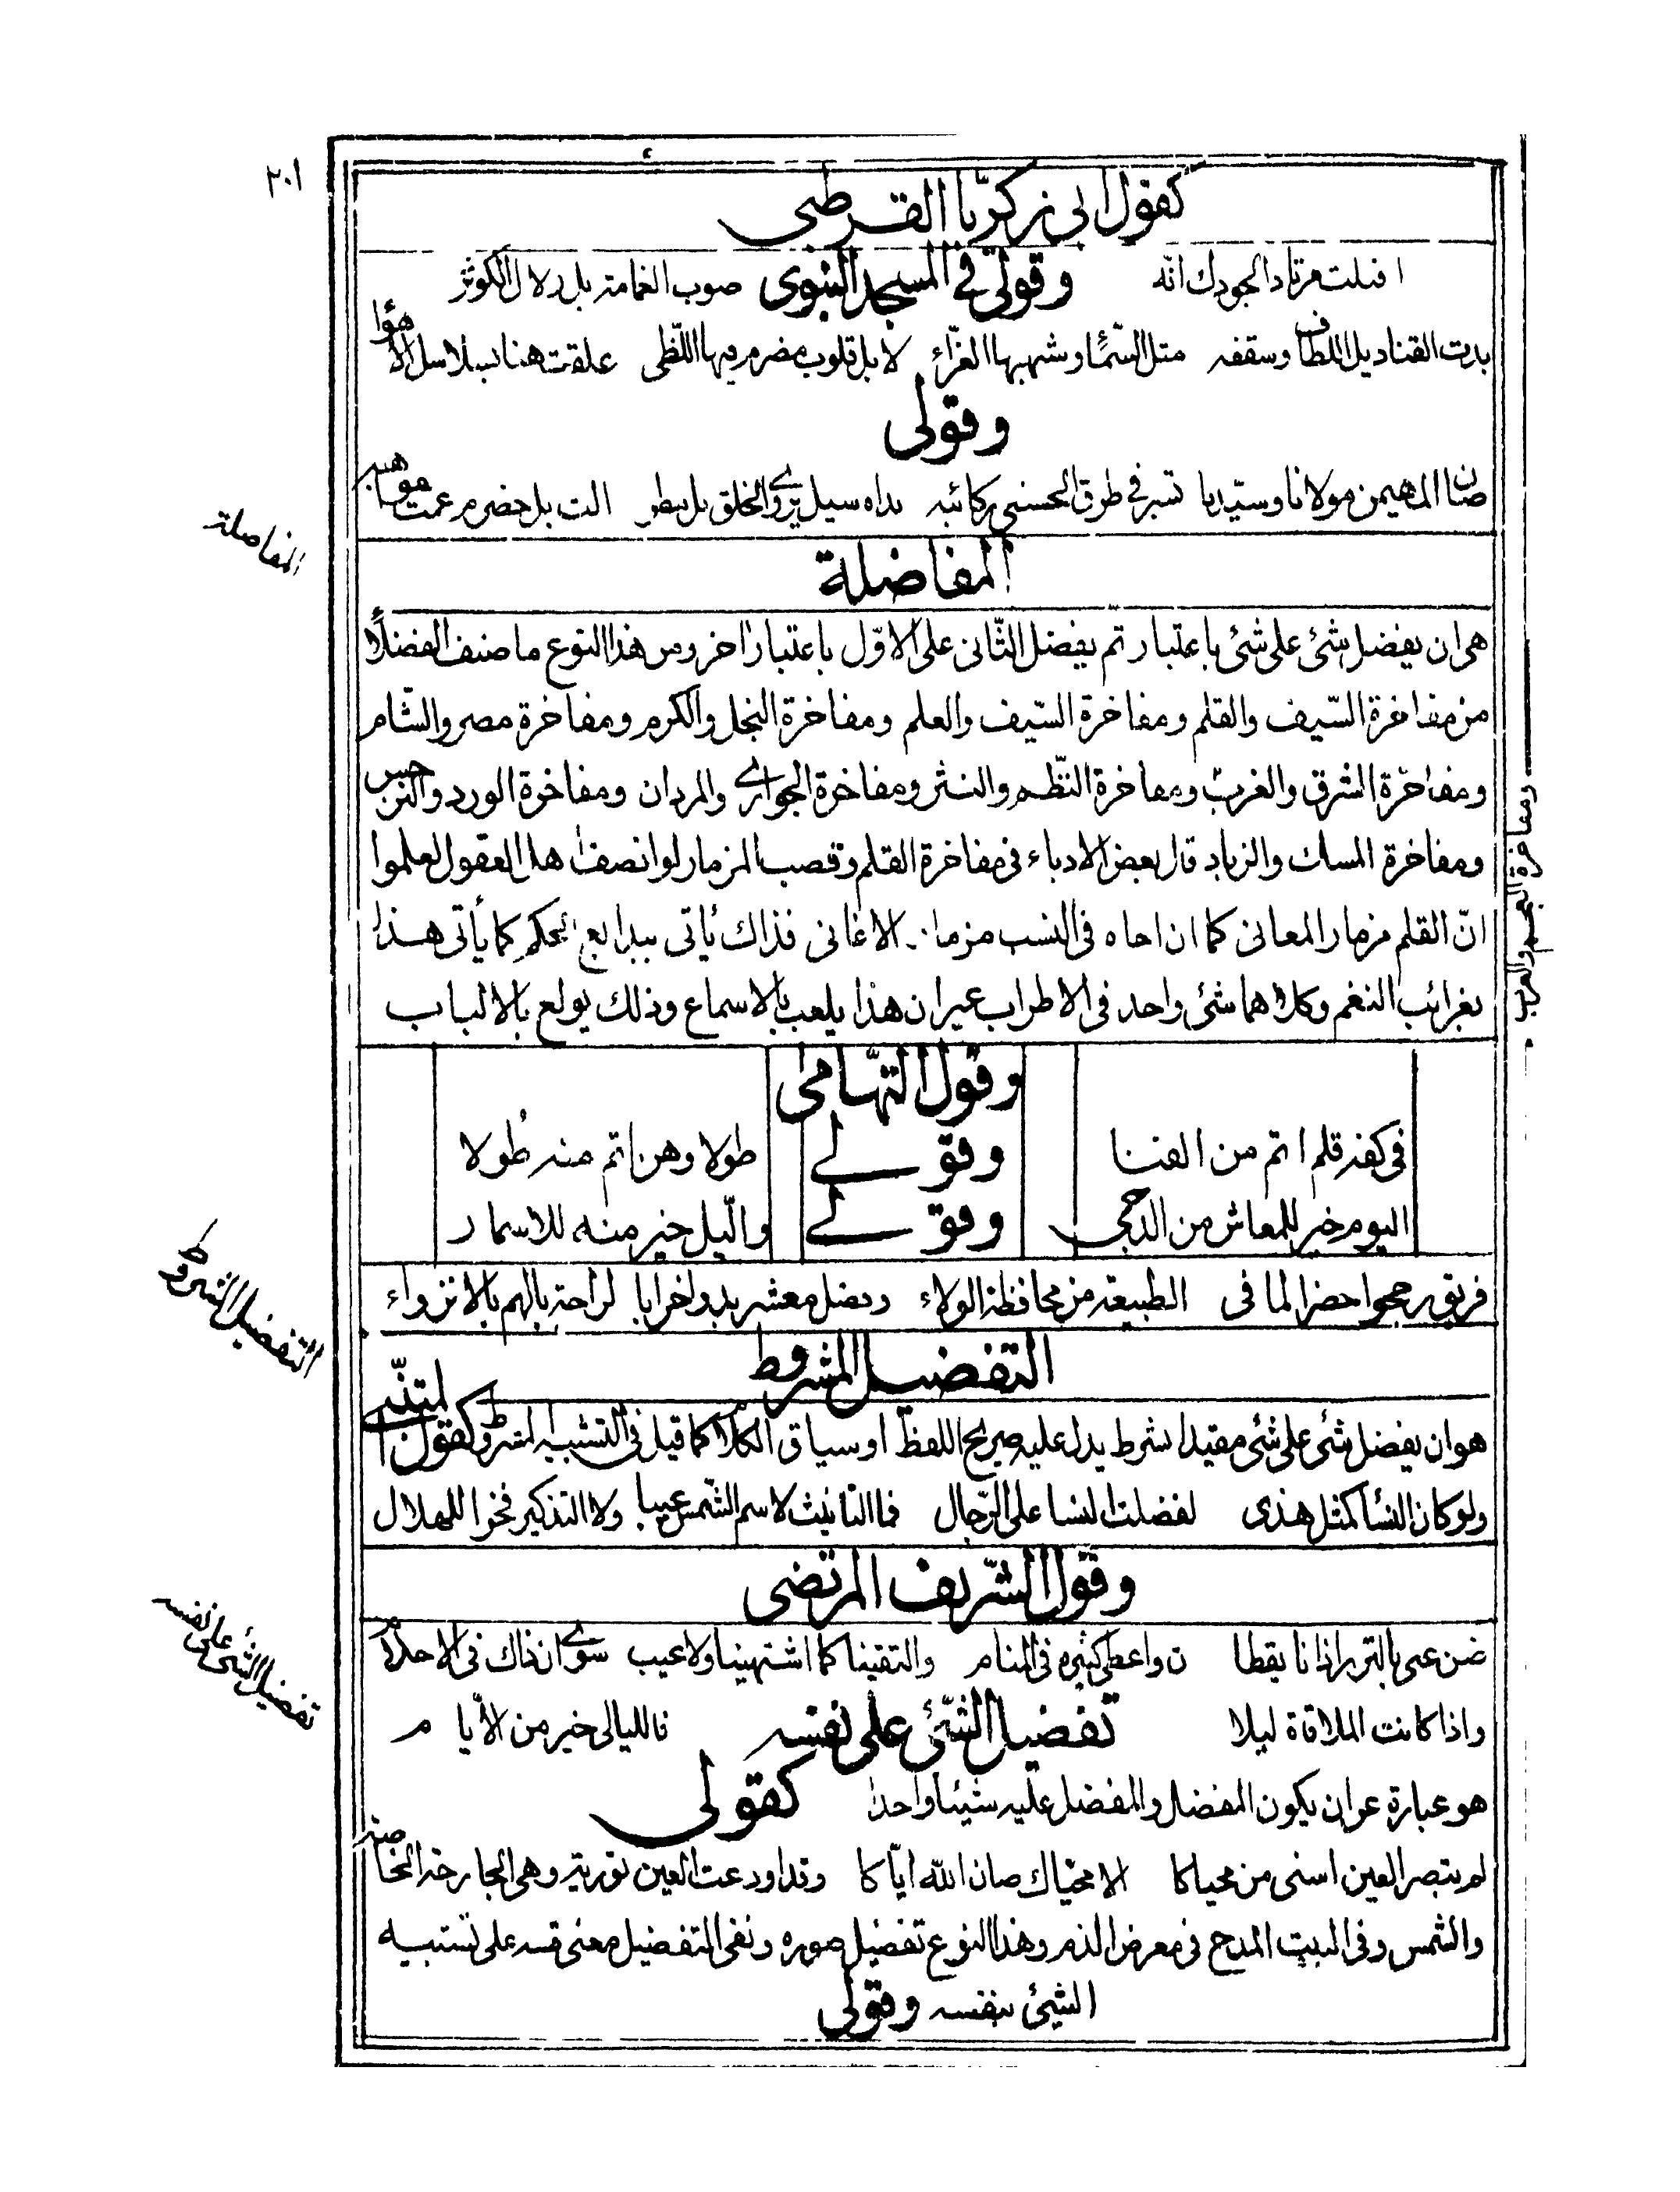 ٢٠١
كقول ابى زكريّا القرطبى
اقبلت مرتاد الجودك انّه وقولى فى المسجد النبوى صوب الغمامة بل زلال الكوثر
بدت القناديل اللطاف وسقفه مثل السّمآ وشهبها الغرّاء لا بل قلوب مضرم فيها اللّظى علقت هنا بسلاسل الاهوآ
وقولى
صان المهيمن مولانا وسيّدنا تسير فى طرق الحسنى ركائبه يداه سيل يروى الخلق بل مطر الت بل خضرم عمت مواهبه
المفاضلة
المفاضلة
هى ان يفضل شئ على شئ باعتبار ثم يفضل الثّانى على الاوّل باعتبار اخر ومن هذا النوع ما صنف الفضلآ
من مفاخرة السّيف والقلم ومفاخرة السّيف والعلم ومفاخرة النخل والكرم ومفاخرة مصر والشّام
ومفاخرة الشرق والغرب ومفاخرة النّظم والنثر ومفاخرة الجوارى والمردان ومفاخرة الورد والنرجس
ومفاخرة العجم والعرب
ومفاخرة المسك والزباد قال بعض الادباء فى مفاخرة القلم وقصب المزمار لو انصف اهل العقول لعلموا
انّ القلم مزمار المعانى كما ان اخاه فى النسب مزمار الاغانى فذاك يأتى ببدايع الحكم كما يأتى هذا
بغرائب النغم وكلاهما شئ واحد فى الاطراب غير ان هذا يلعب بالاسماع وذلك يولع بالالباب
وقول التهّامى
فى كفه قلم اتم من القنا وقولى طولا وهن اتم منه طولا
اليوم خير للمعاش من الدجى وقولى والّيل خير منه للاسمار
فريق رجحوا حضرا لما فى الطبيعة من محافظة الولاء وفضل معشر بدوا خرابا لراحة بالهم بالانزواء
التفضيل المشروط
التفضيل المشروط
هو ان يفضل شئ على شئ مقيدا بشرط يدل عليه صريح اللفظ او سياق الكلام كما قيل فى التشبيه المشروط كقول المتنبّى
ولو كان النسآ كمثل هذى لفضلت النسا على الرّجال فما التانيث لاسم الشّمس عيبا ولا التذكير فخر للهلال
وقول الشّريف المرتضى
ضن عنى بالنزر اذ انا يقظا ن واعطى كثيره فى المنام والتقينا كما اشتهينا ولا عيب سوى ان ذاك فى الاحلام
واذا كانت الملاقاة ليلا تفضيل الشّئ على نفسه فالليالى خير من الأيّام
تفضيل الشئ على نفسه
هو عبارة عن ان يكون المفضل والمفضل عليه شيئا واحدا كقولى
لم يتبصر العين اسنى من محياكا الا محيّاك صان الله ايّاكا وقد اودعت العين تورية وهى الجارحة الخاصة
والشمس وفى البيت المدح فى معرض الذم وهذا النوع تفضيل صورة ونفى التفضيل معنى قسه على تشبيه
الشيئ بنفسه وقولى